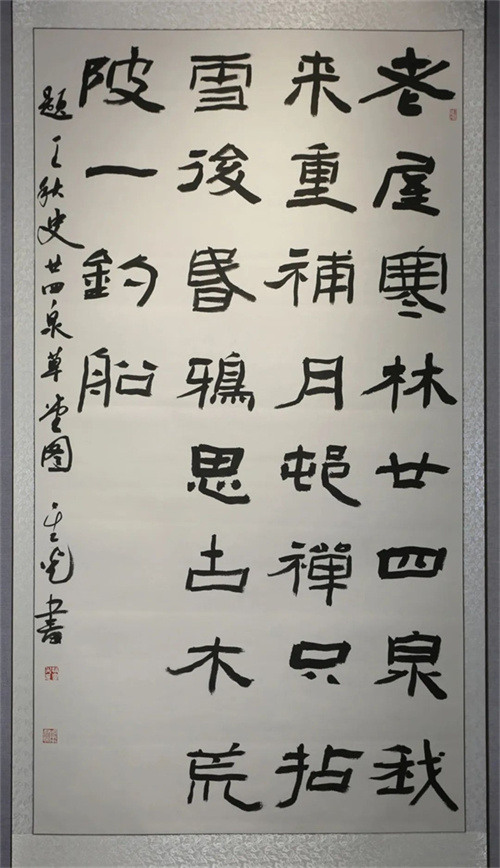 老屋寒林廿四泉我
来重補月邨禪只拈
雪後昏鴉思古木荒
陂一釣船
題王秋史廿四泉草堂图 書